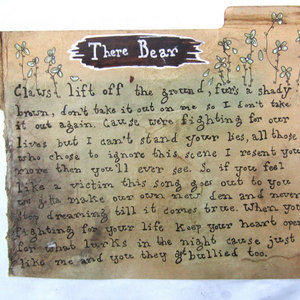 There Bear
Claws! lift off the ground, fur's a shady
brown, don't take it out on me so I don't take
it out again. Cause were fighting for our
lives but I can't stand your lies, all those
who chose to ignore this scene I resent you
more then you'll ever see. So if you feel
like a victim this song goes out to you
we gtta make our own new den and never
stop dreaming till it comes true. When you
fighting for your life keep your heart open
for what lurks in the night cause just
like me and you they get bullied too.